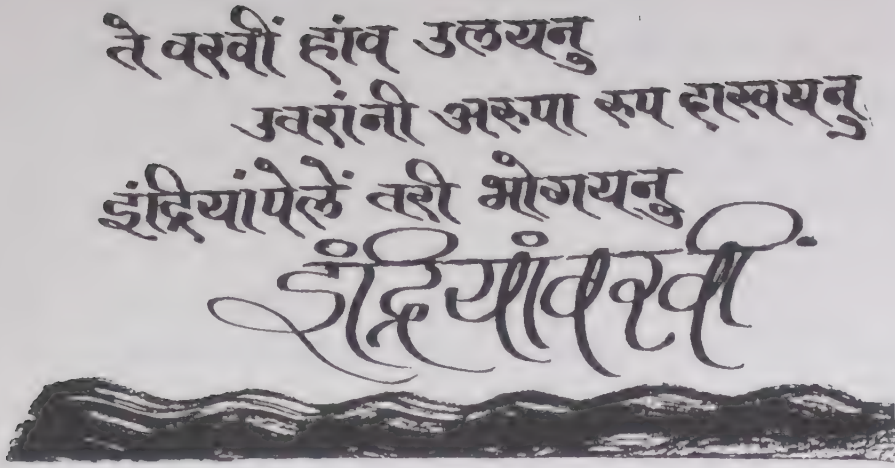 ते वरवीं हांव उलयनु
उवरांनी अरूपा रूप दाखयनु
इंद्रियांपेलें तरी भोगयनु
इंद्रियांवरवीं